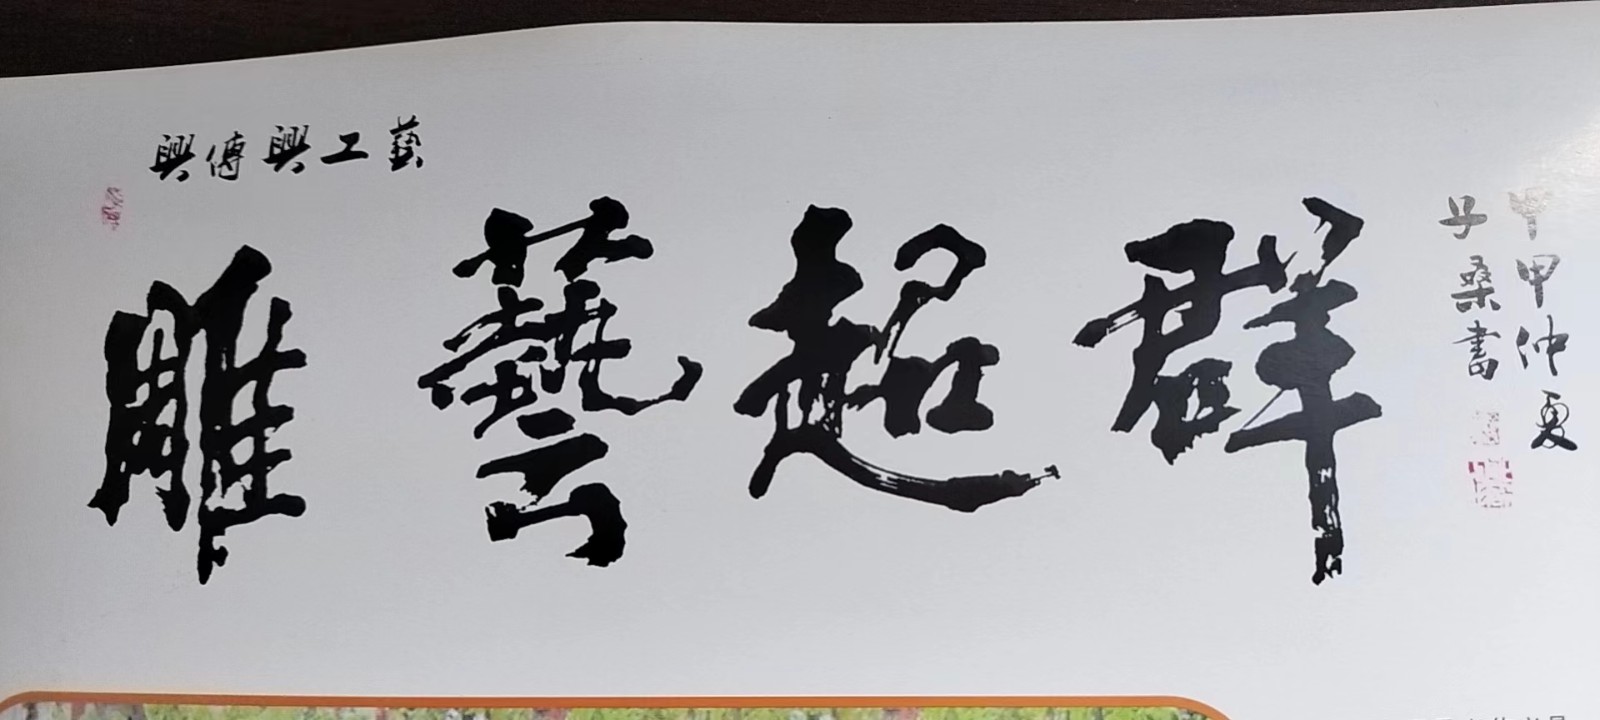 興傳興工藝
雕藝超群
甲申仲夏
子桑書